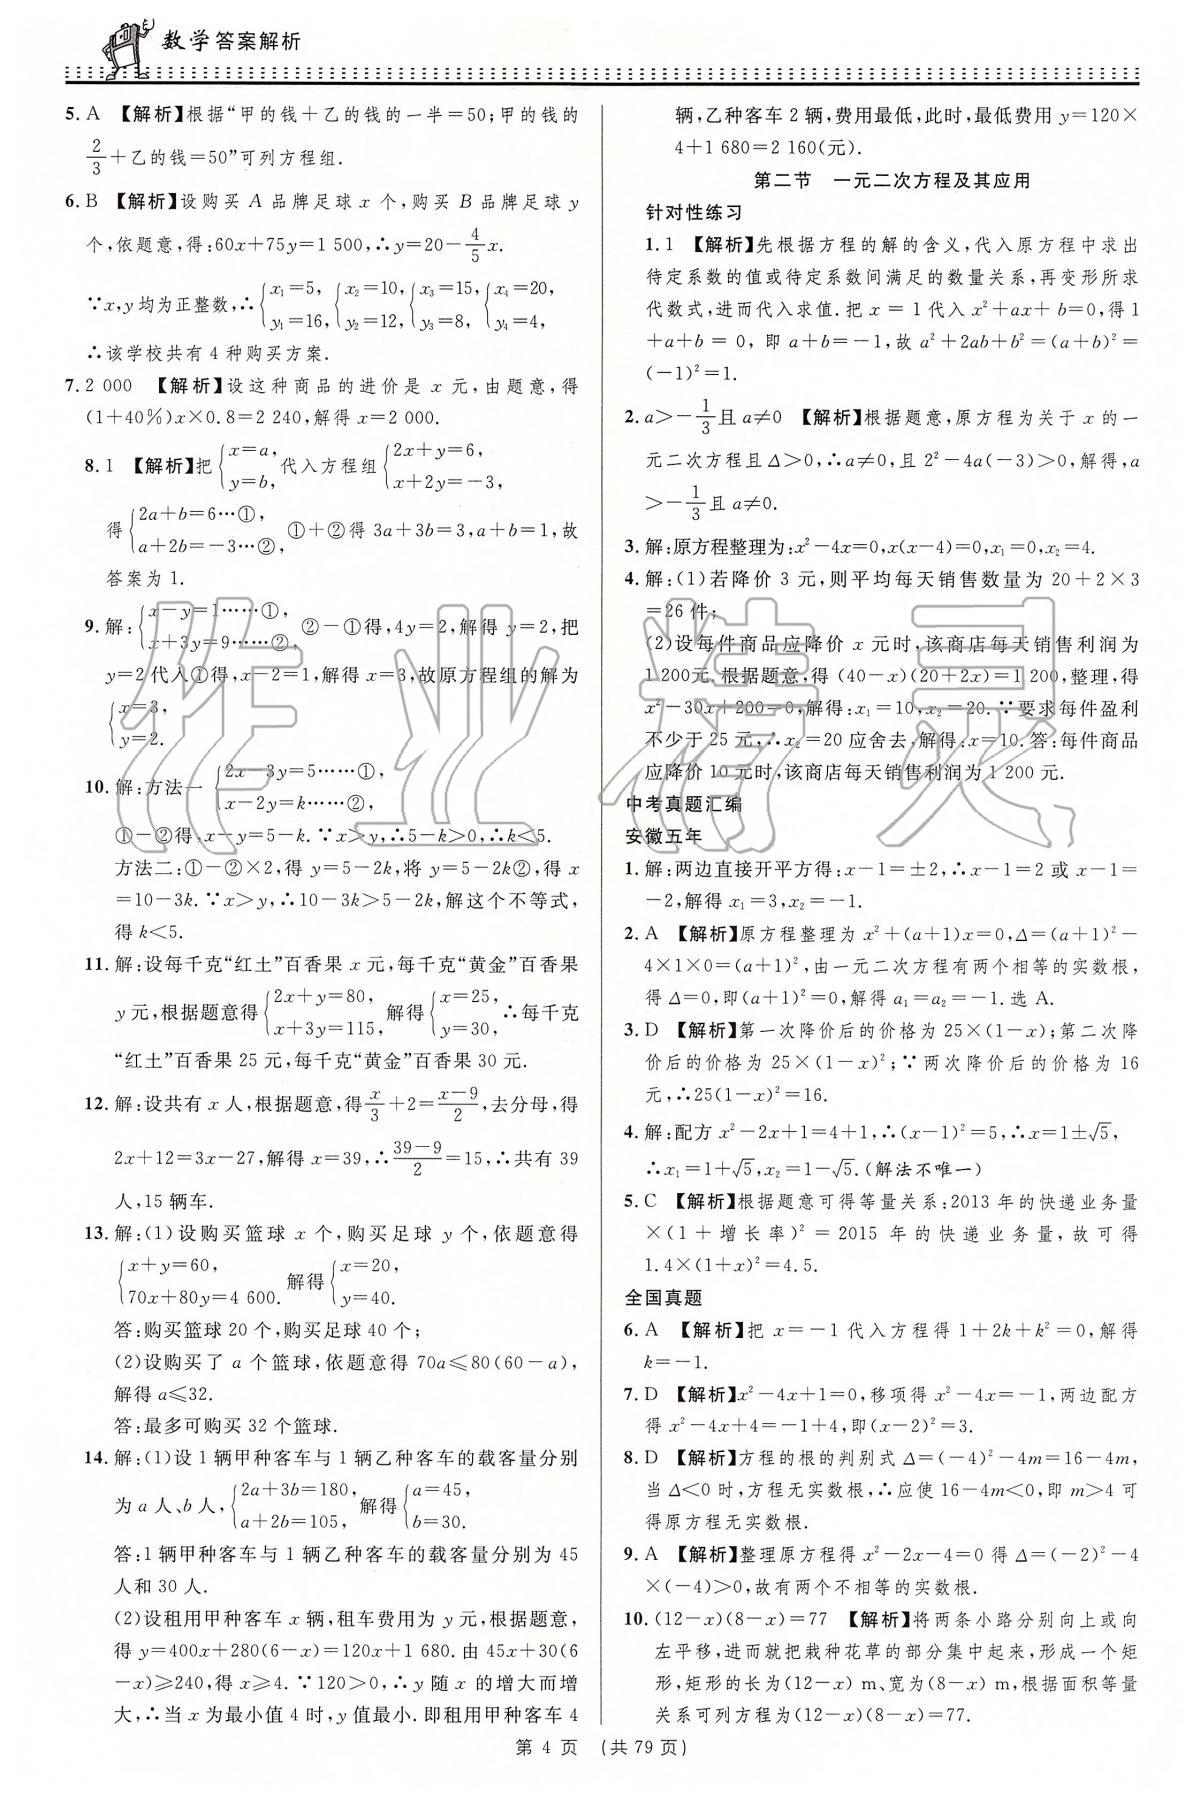 数学答案解析
5. A 【解析】根据“甲的钱＋乙的钱的一半＝50;甲的钱的
2/3＋乙的钱＝50”可列方程组.
6. B 【解析】设购买 A 品牌足球 x 个,购买 B 品牌足球 y
个,依题意,得:60x＋75y＝1 500,∴y＝20－4/5x.
∵x,y 均为正整数,∴{x₁＝5, y₁＝16, {x₂＝10, y₂＝12, {x₃＝15, y₃＝8, {x₄＝20, y₄＝4,
∴该学校共有 4 种购买方案.
7. 2 000 【解析】设这种商品的进价是 x 元,由题意,得
(1＋40%)x×0.8＝2 240,解得 x＝2 000.
8. 1 【解析】把{x＝a, y＝b, 代入方程组{2x＋y＝6, x＋2y＝－3,
得{2a＋b＝6…①, a＋2b＝－3…②, ①＋②得 3a＋3b＝3,a＋b＝1,故
答案为 1.
9. 解:{x－y＝1……①, x＋3y＝9……②, ②－①得,4y＝2,解得 y＝2,把
y＝2代入①得,x－2＝1,解得 x＝3,故原方程组的解为
{x＝3, y＝2.
10. 解:方法一 {2x－3y＝5……①, x－2y＝k……②,
①－②得,x－y＝5－k.∵x＞y,∴5－k＞0,∴k＜5.
方法二:①－②×2,得 y＝5－2k,将 y＝5－2k②,得 x
＝10－3k.∵x＞y,∴10－3k＞5－2k,解这个不等式,
得 k＜5.
11. 解:设每千克“红土”百香果 x 元,每千克“黄金”百香果
y 元,根据题意得{2x＋y＝80, x＋3y＝115, 解得{x＝25, y＝30, ∴每千克
“红土”百香果 25 元,每千克“黄金”百香果 30 元.
12. 解:设共有 x 人,根据题意,得x/3＋2＝(x－9)/2,去分母,得
2x＋12＝3x－27,解得 x＝39,∴(39－9)/2＝15,∴共有 39
人,15 辆车.
13. 解:(1)设购买篮球 x 个,购买足球 y 个,依题意得
{x＋y＝60, 70x＋80y＝4 600. 解得{x＝20, y＝40.
答:购买篮球 20 个,购买足球 40 个;
(2)设购买了 a 个篮球,依题意得 70a≤80(60－a),
解得 a≤32.
答:最多可购买 32 个篮球.
14. 解:(1)设 1 辆甲种客车与 1 辆乙种客车的载客量分别
为 a 人、b 人,{2a＋3b＝180, a＋2b＝105, 解得{a＝45, b＝30.
答:1 辆甲种客车与 1 辆乙种客车的载客量分别为 45
人和 30 人.
(2)设租用甲种客车 x 辆,租车费用为 y 元,根据题意,
得 y＝400x＋280(6－x)＝120x＋1 680.由 45x＋30(6
－x)≥240,得 x≥4.∵120＞0,∴y 随 x 的增大而增
大,∴当 x 为最小值 4 时,y 值最小.即租用甲种客车 4
辆,乙种客车 2 辆,费用最低,此时,最低费用 y＝120×
4＋1 680＝2 160(元).
第二节 一元二次方程及其应用
针对性练习
1. 1 【解析】先根据方程的解的含义,代入原方程中求出
待定系数的值或待定系数间满足的数量关系,再变形所求
代数式,进而代入求值.把 x ＝ 1代入 x²＋ax＋ b＝0,得 1
＋a＋b ＝ 0, 即 a＋b＝－1,故 a²＋2ab＋b²＝(a＋b)²＝
(－1)²＝1.
2. a＞－1/3且 a≠0 【解析】根据题意,原方程为关于 x 的一
元二次方程且 Δ＞0,∴a≠0,且 2²－4a(－3)＞0,解得,a
＞－1/3且 a≠0.
3. 解:原方程整理为:x²－4x＝0,x(x－4)＝0,x₁＝0,x₂＝4.
4. 解:(1)若降价 3 元,则平均每天销售数量为 20＋2×3
＝26 件;
(2)设每件商品应降价 x 元时,该商店每天销售利润为
1 200元.根据题意,得 (40－x)(20＋2x)＝1 200,整理,得
x²－30x＋200＝0,解得:x₁＝10,x₂＝20.∵要求每件盈利
不少于 25 元,∴x₂＝20 应舍去,解得:x＝10.答:每件商品
应降价 10 元时,该商店每天销售利润为 1 200 元.
中考真题汇编
安徽五年
1. 解:两边直接开平方得:x－1＝±2,∴x－1＝2 或 x－1＝
－2,解得 x₁＝3,x₂＝－1.
2. A 【解析】原方程整理为 x²＋(a＋1)x＝0,Δ＝(a＋1)²－
4×1×0＝(a＋1)²,由一元二次方程有两个相等的实数根,
得 Δ＝0,即(a＋1)²＝0,解得 a₁＝a₂＝－1.选 A.
3. D 【解析】第一次降价后的价格为 25×(1－x);第二次降
价后的价格为 25×(1－x)²;∵两次降价后的价格为 16
元,∴25(1－x)²＝16.
4. 解:配方 x²－2x＋1＝4＋1,∴(x－1)²＝5,∴x＝1±√5,
∴x₁＝1＋√5,x₂＝1－√5.(解法不唯一)
5. C 【解析】根据题意可得等量关系:2013 年的快递业务量
×(1＋增长率)²＝2015 年的快递业务量,故可得
1.4×(1＋x)²＝4.5.
全国真题
6. A 【解析】把 x＝－1 代入方程得 1＋2k＋k²＝0,解得
k＝－1.
7. D 【解析】x²－4x＋1＝0,移项得 x²－4x＝－1,两边配方
得 x²－4x＋4＝－1＋4,即(x－2)²＝3.
8. D 【解析】方程的根的判别式 Δ＝(－4)²－4m＝16－4m,
当 Δ＜0 时,方程无实数根,∴应使 16－4m＜0,即 m＞4 可
得原方程无实数根.
9. A 【解析】整理原方程得 x²－2x－4＝0 得 Δ＝(－2)²－4
×(－4)＞0,故有两个不相等的实数根.
10. (12－x)(8－x)＝77 【解析】将两条小路分别向上或向
左平移,进而就把栽种花草的部分集中起来,形成一个矩
形,矩形的长为(12－x) m、宽为(8－x) m,根据面积等量
关系可列方程为(12－x)(8－x)＝77.
作业精灵
第 4 页 (共 79 页)